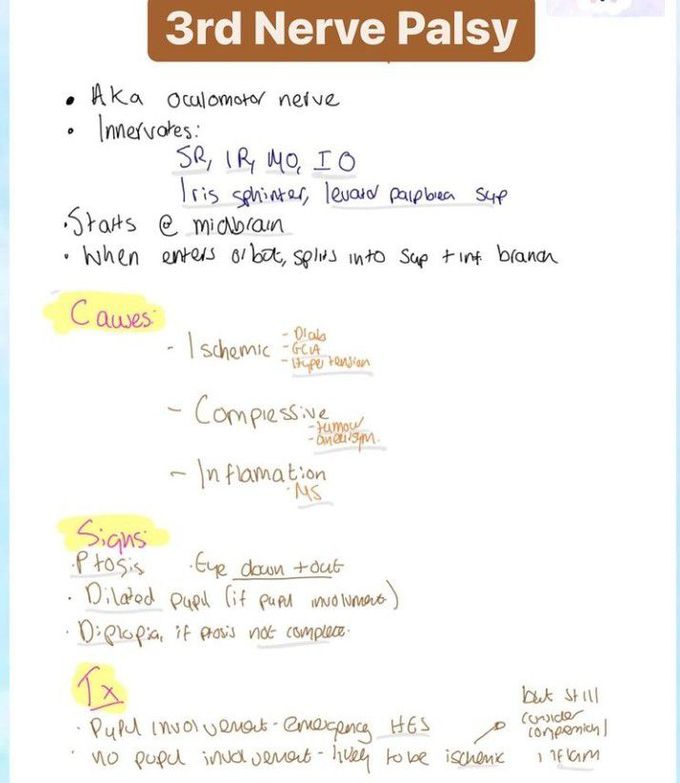 3rd Nerve Palsy
• Aka oculomotor nerve
• Innervates:
SR, IR, MO, IO
Iris sphinter, levator palpbrea sup
• Starts @ midbrain
• When enters orbot, splits into sup + inf branch
Causes:
- Ischemic
- Diab
- GCA
- Hypertension
- Compressive
- tumour
- aneurism.
- Inflamation
• MS
Signs
• Ptosis • Eye down + out
• Dilated pupil (if pupil involvment)
• Diplopia, if ptosis not complete.
Tx
• Pupil involvement - emergency HES
• no pupil involvement - likely to be ischemic
but still
consider
compression /
inflam